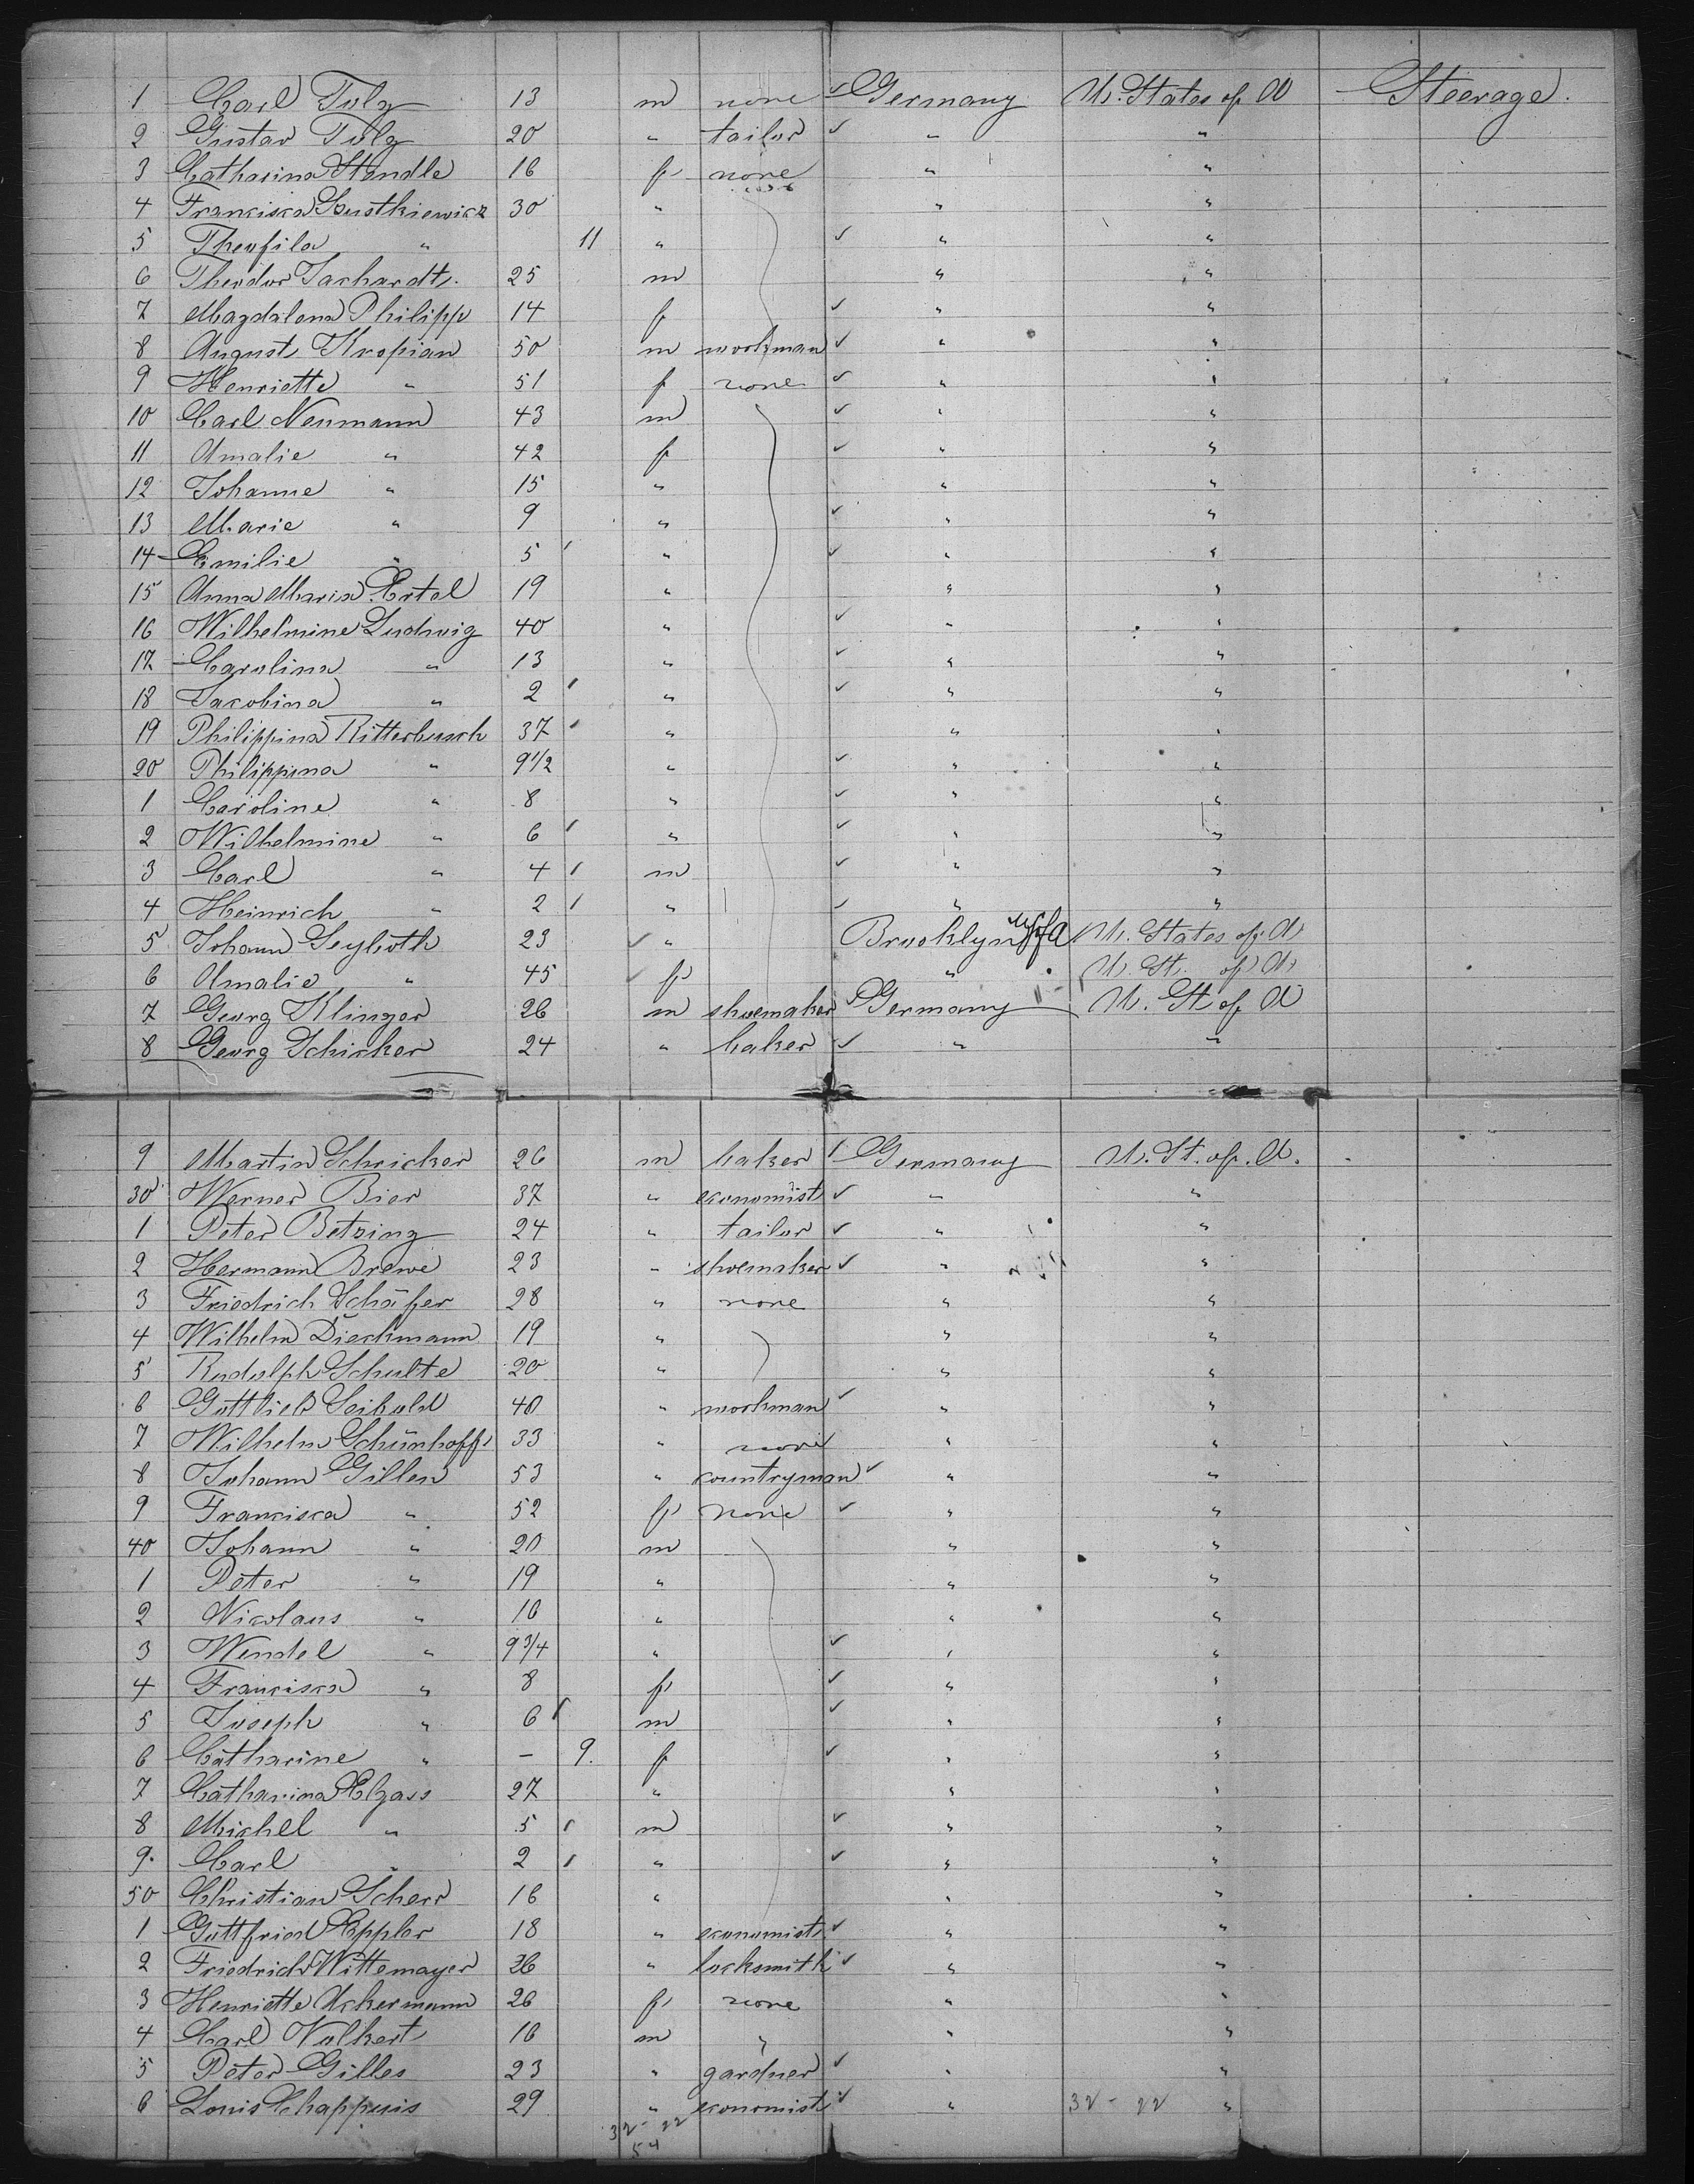 1 Carl Tulz 13 m none ✓ Germany U. States of A Steerage.
2 Gustav Tulz 20 " tailor ✓ " "
3 Catharina Standle 16 f none " "
4 Franziska 30 " " "
5 Theofila " 11 " ✓ " "
6 Theodor Sachardt. 25 m " "
7 Magdalena Philipp 14 f ✓ " "
8 August Kropian 50 m workman ✓ " "
9 Henriette " 51 f none ✓ " "
10 Carl Neumann 43 m ✓ " "
11 Amalie " 42 f ✓ " "
12 Johanne " 15 " " "
13 Marie " 9 " ✓ " "
14 Emilie " 5 " ✓ " "
15 Anna Maria Ertel 19 " " "
16 Wilhelmine Ludwig 40 " ✓ " "
17 Carolina " 13 " ✓ " "
18 Jacobina " 2 " ✓ " "
19 Philippina Ritterbusch 37 " " "
20 Philippina " 9 1/2 " ✓ " "
1 Caroline " 8 " ✓ " "
2 Wilhelmine " 6 " ✓ " "
3 Carl " 4 m ✓ " "
4 Heinrich " 2 " ✓ " "
5 Johann Seyboth 23 ✓ " Brooklyn U S of A U. States of A
6 Amalie " 45 ✓ f " U. St. of A
7 Georg Klinger 26 m shoemaker ✓ Germany U. St of A
8 Georg Schicker 24 " baker ✓ " "
9 Martin Schricker 26 m baker ✓ Germany U. St. of. A.
30 Werner Bier 37 " economist ✓ " "
1 Peter Betzing 24 " tailor ✓ " "
2 Hermann Brewe 23 " shoemaker ✓ " "
3 Friedrich Schäfer 28 " none " "
4 Wilhelm Dieckmann 19 " " "
5 Rudolph Schulte 20 " " "
6 Gottlieb Seibold 40 " workman ✓ " "
7 Wilhelm Schünhoff 33 " none " "
8 Johann Gillen 53 " countryman ✓ " "
9 Franziska " 52 f none ✓ " "
40 Johann " 20 m " "
1 Peter " 19 " " "
2 Nicolaus " 16 " " "
3 Wendel " 9 3/4 " ✓ " "
4 Franziska " 8 f ✓ " "
5 Joseph " 6 m ✓ " "
6 Catharine " — 9. f ✓ " "
7 Catharina Elzass 27 " " "
8 Michel " 5 m ✓ " "
9. Carl " 2 " ✓ " "
50 Christian Scherr 16 " " "
1 Gottfried Eppler 18 " economist ✓ " "
2 Friedrich Wittemayer 36 " locksmith ✓ " "
3 Henriette Ackermann 26 f none " "
4 Carl Volkert 16 m " " "
5 Peter Gilles 23 " gardner ✓ " "
6 Louis Chappuis 29 " economist ✓ " 32 - 22 "
32 - 22
54